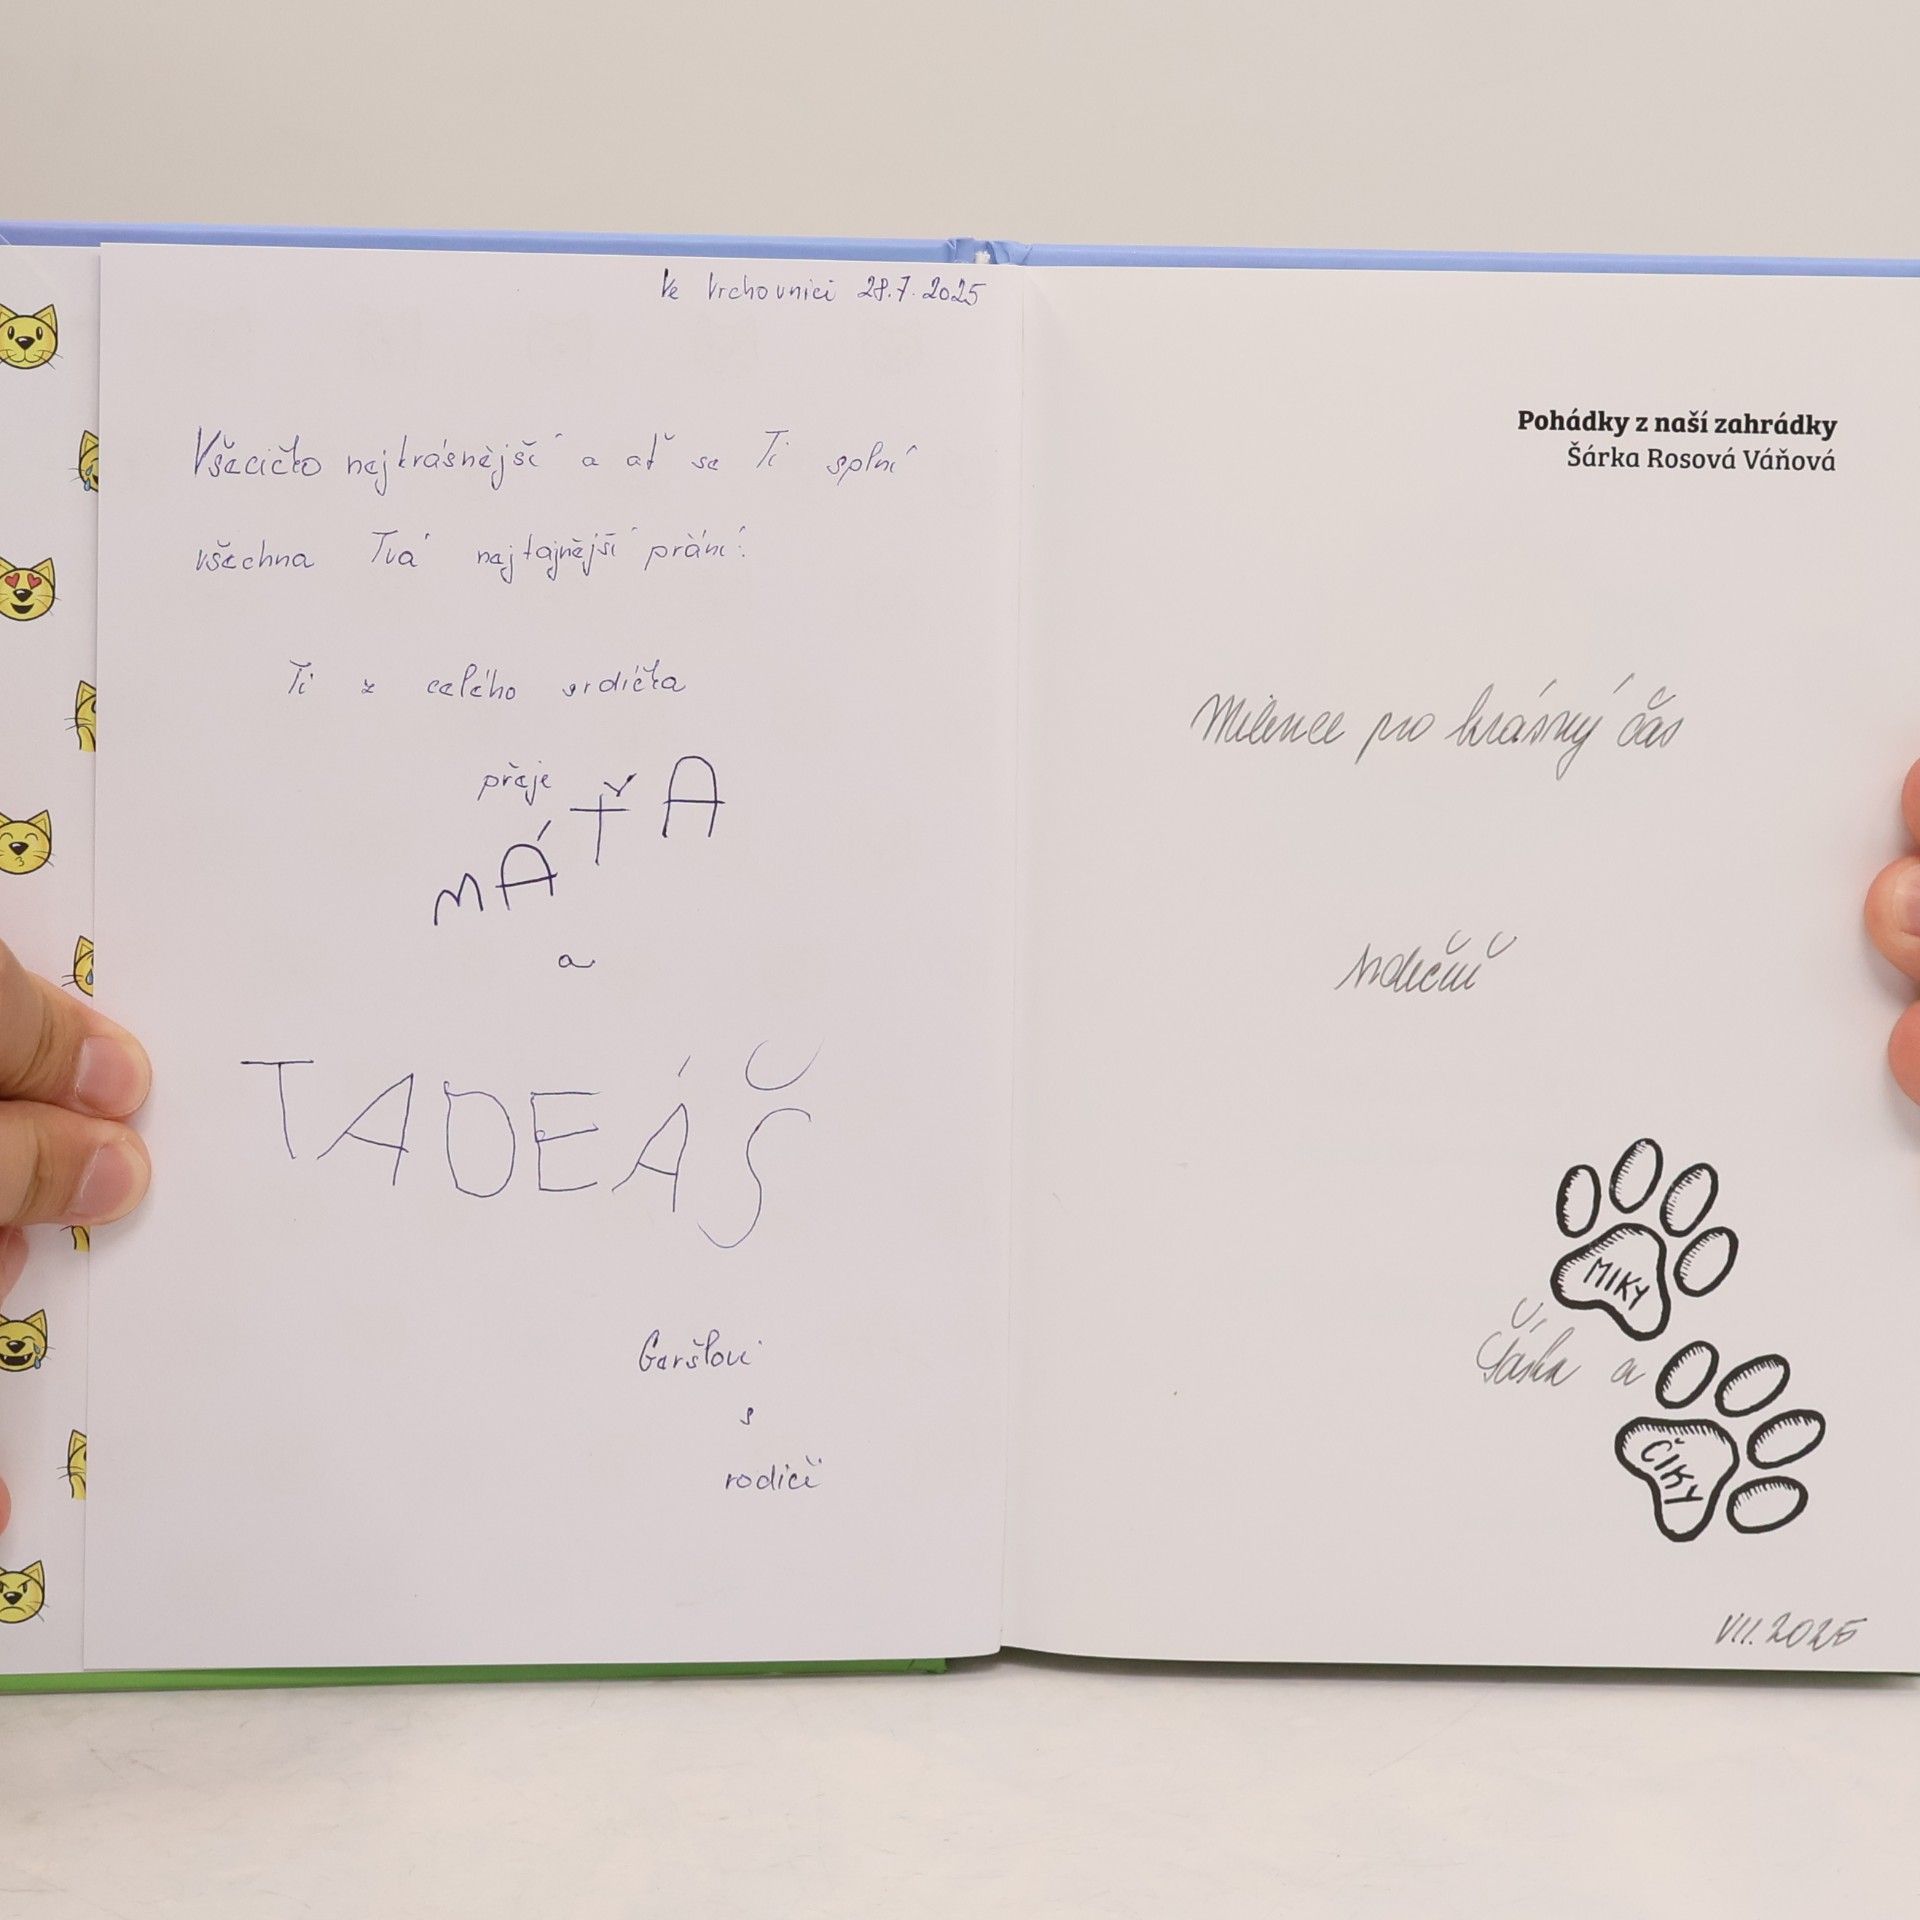 Ve Vrchovnici 28.7.2025
Všecičko nejkrásnější a ať se Ti splní
všechna Tvá nejtajnější přání.
Ti z celého srdíčka
přeje
MÁŤA
a
TADEÁŠ
s
rodiči
Pohádky z naší zahrádky
Šárka Rosová Váňová
Milence pro krásný čas
srdečně
MIKY
Šárka a
ČIKY
VII. 2025